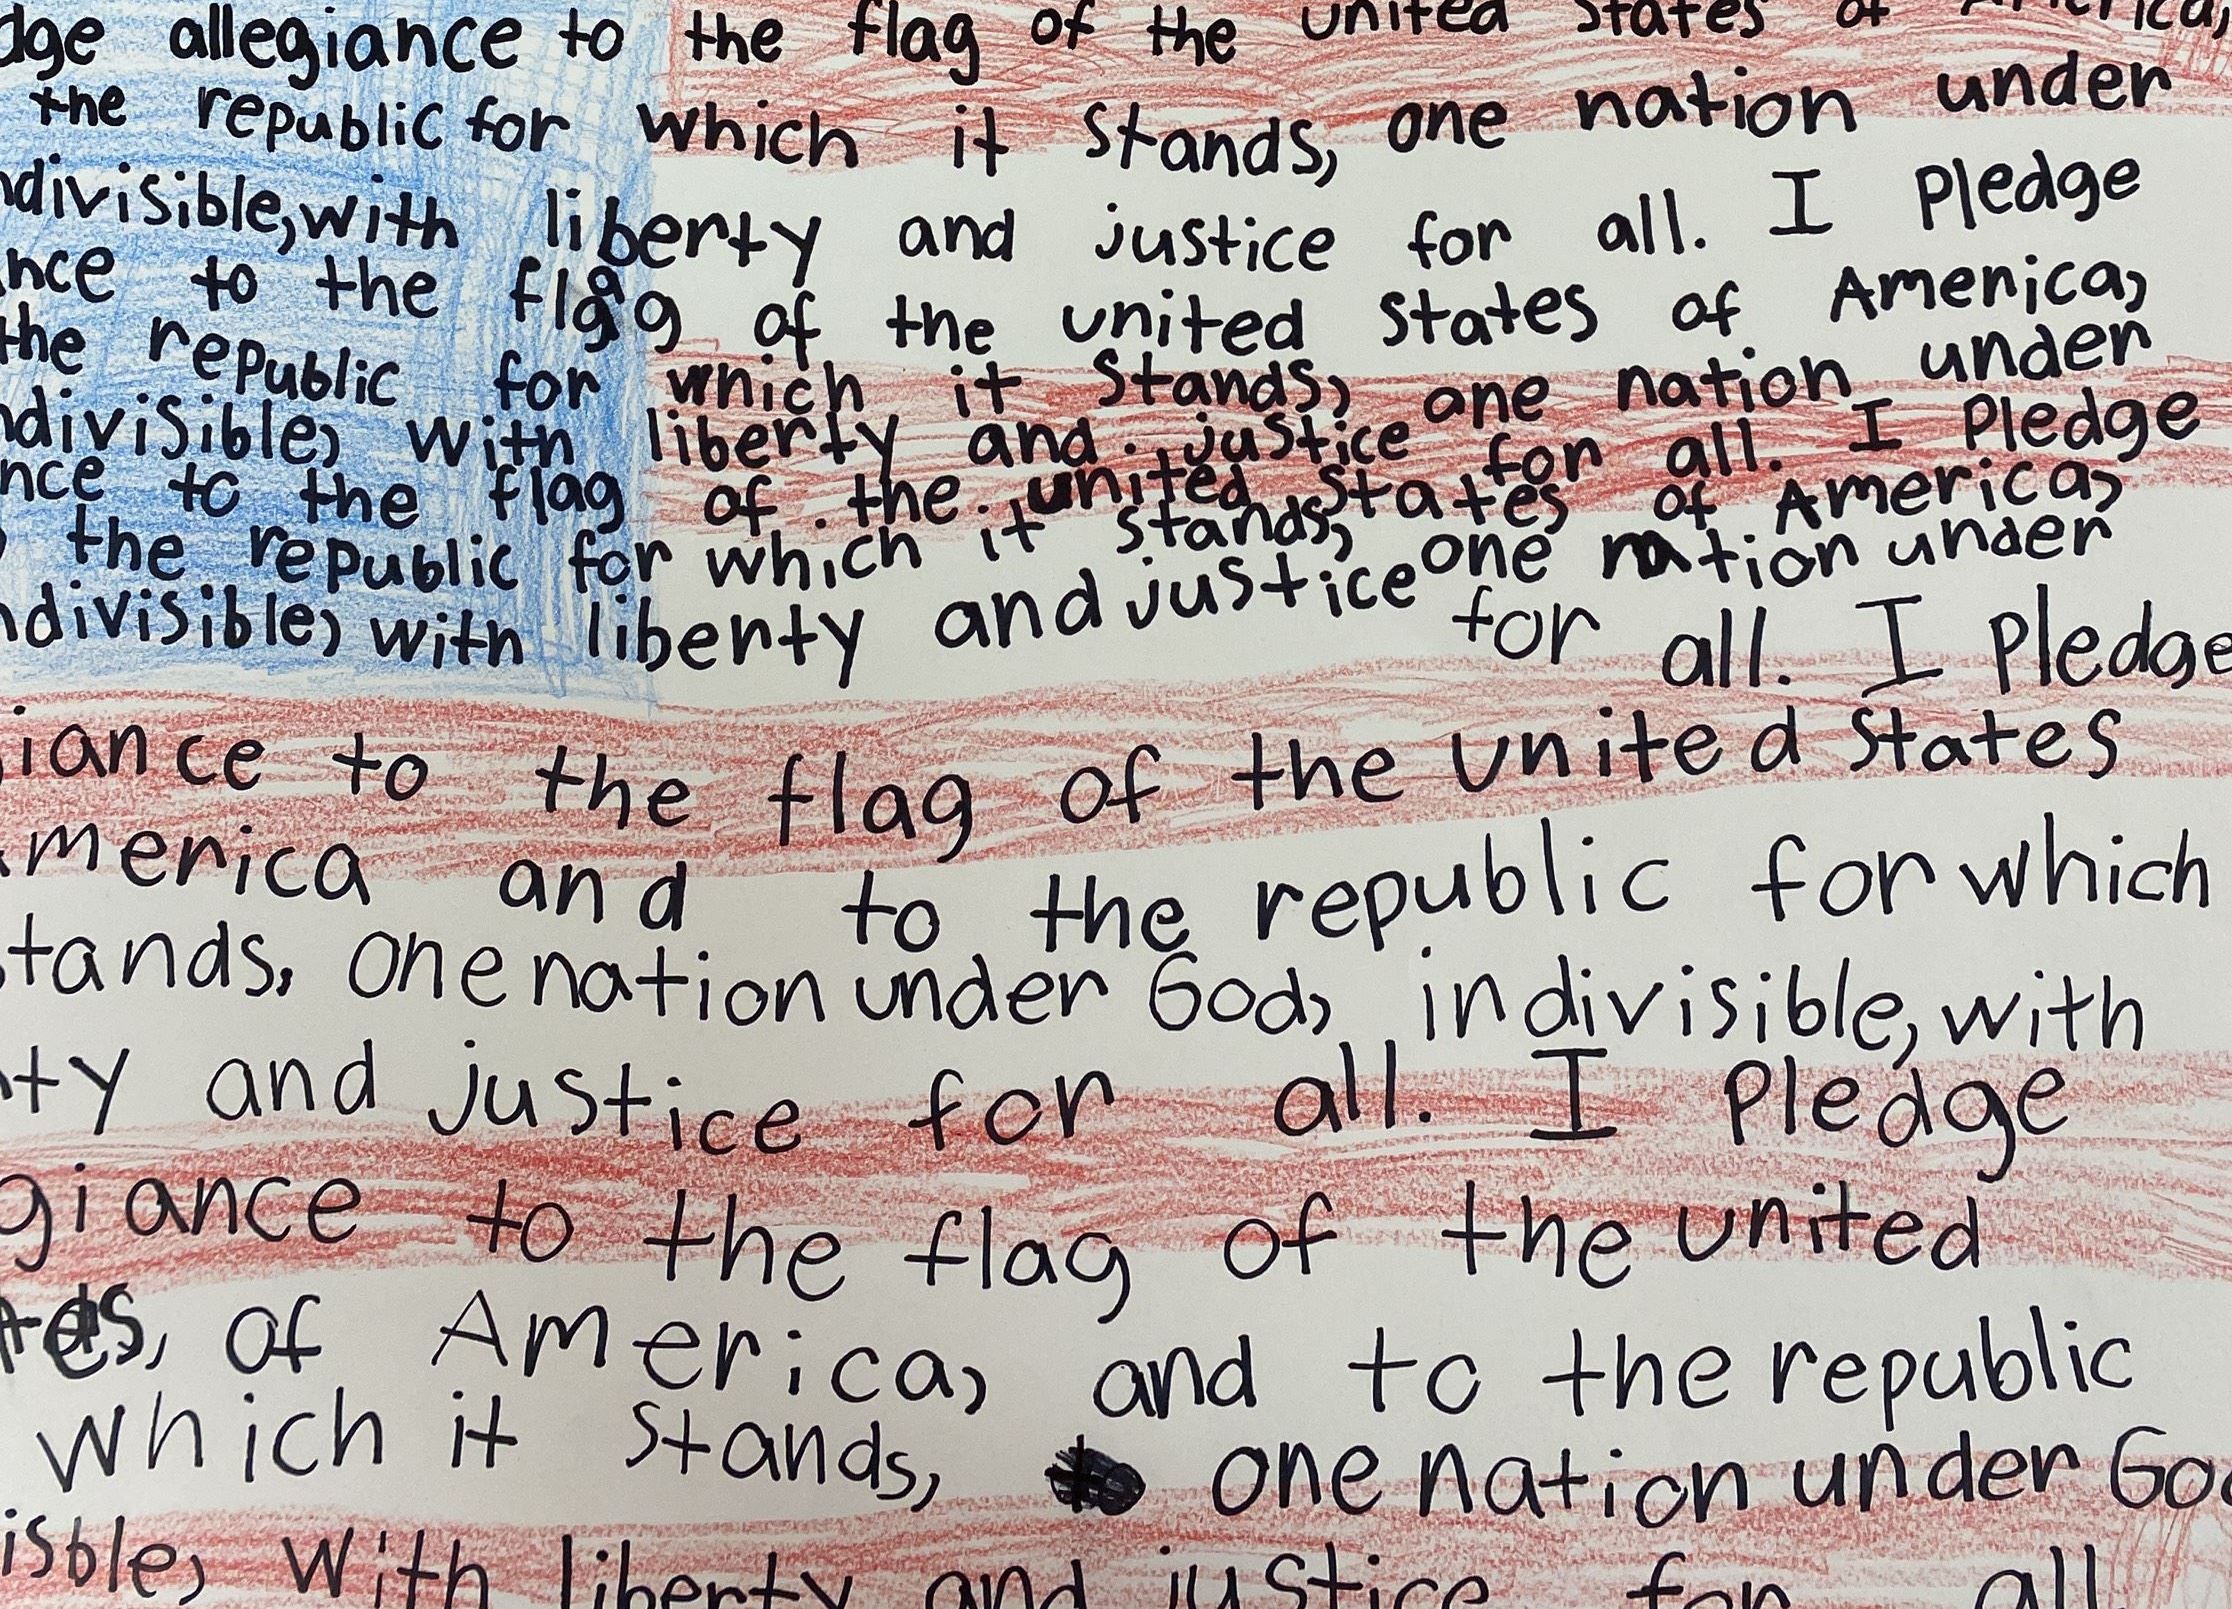 dge allegiance to the flag of the united states of America,
the republic for which it stands, one nation under
ndivisible, with liberty and justice for all. I pledge
nce to the flag of the united states of America,
the republic for which it stands, one nation under
ndivisible, with liberty and justice for all. I pledge
nce to the flag of the united states of America,
the republic for which it stands, one nation under
ndivisible, with liberty and justice for all. I pledge
iance to the flag of the united states
merica and to the republic for which
tands, one nation under God, indivisible, with
ty and justice for all. I pledge
giance to the flag of the united
tes, of America, and to the republic
which it stands, one nation under Go
isble, with liberty and justice for all